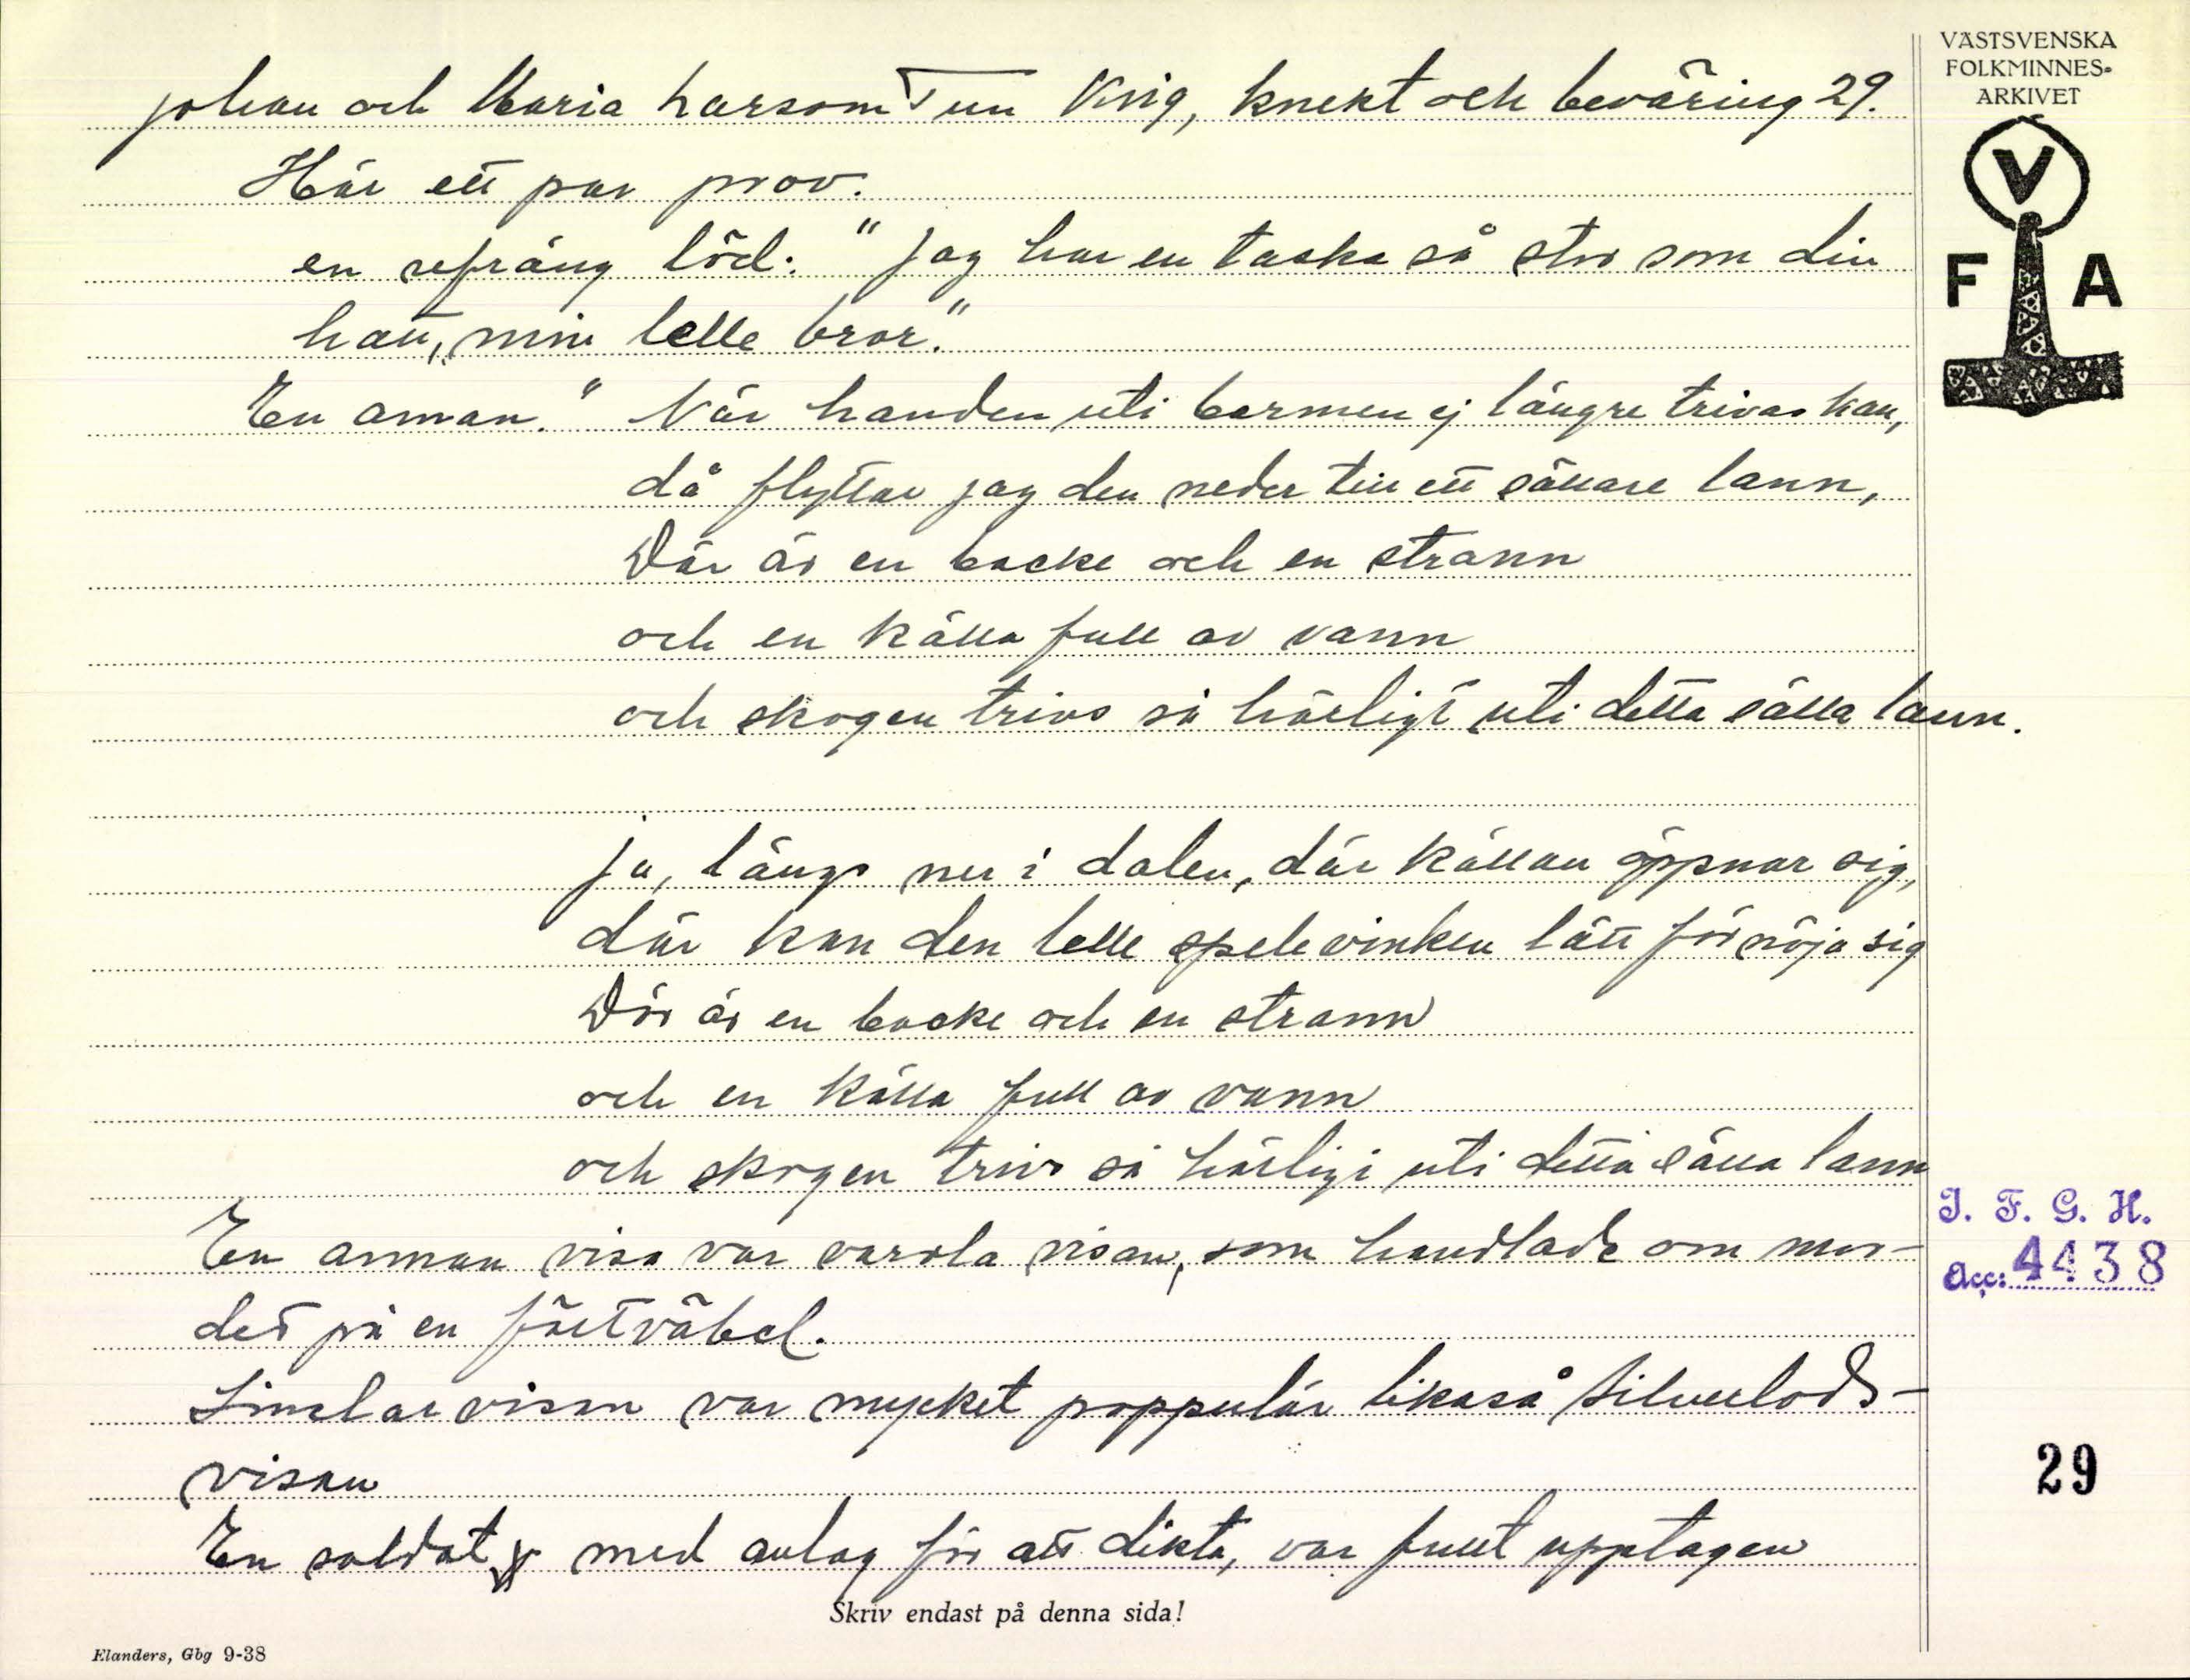 VÄSTSVENSKA
FOLKMINNES-
ARKIVET
V
F A
Johan och Maria Larsson Tun Krig, knekt och beväring 29.
Här ett par prov.
en refräng löd: "Jag har en taska så stor som din
hatt, min lelle bror."
En annan. " När handen uti barmen ej längre trivas kan,
då flyttar jag den neder till ett sällare lann,
Där är en backe och en strann
och en källa full av vann
och skogen trivs så härligt uti detta sälla lann.
Ja, längs ner i dalen, där källan öppnar sig,
där kan den lelle spelevinken lätt förnöja sig
Där är en backe och en strann
och en källa full av vann
och skogen trivs så härligt uti detta sälla lann
En annan visa var visan, som handlade om mor-
det på en fältväbel.
Sinclarvisan var mycket poppulär likaså Silverlods-
visan
En soldat med anlag för att dikta, var fullt upptagen
Skriv endast på denna sida!
Elanders, Gbg 9-38
I. F. G. H.
Acc: 4438
29